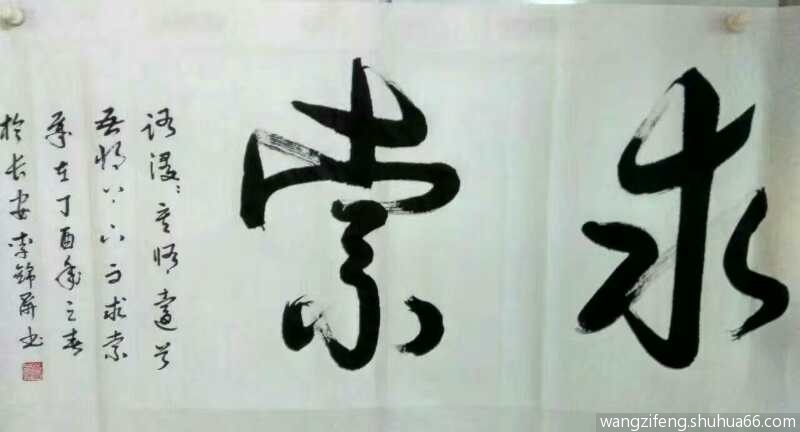 求索
路漫漫其修遠兮
吾将上下而求索
歲在丁酉年之春
於长安李锦书
wangzifeng.shuhua66.com